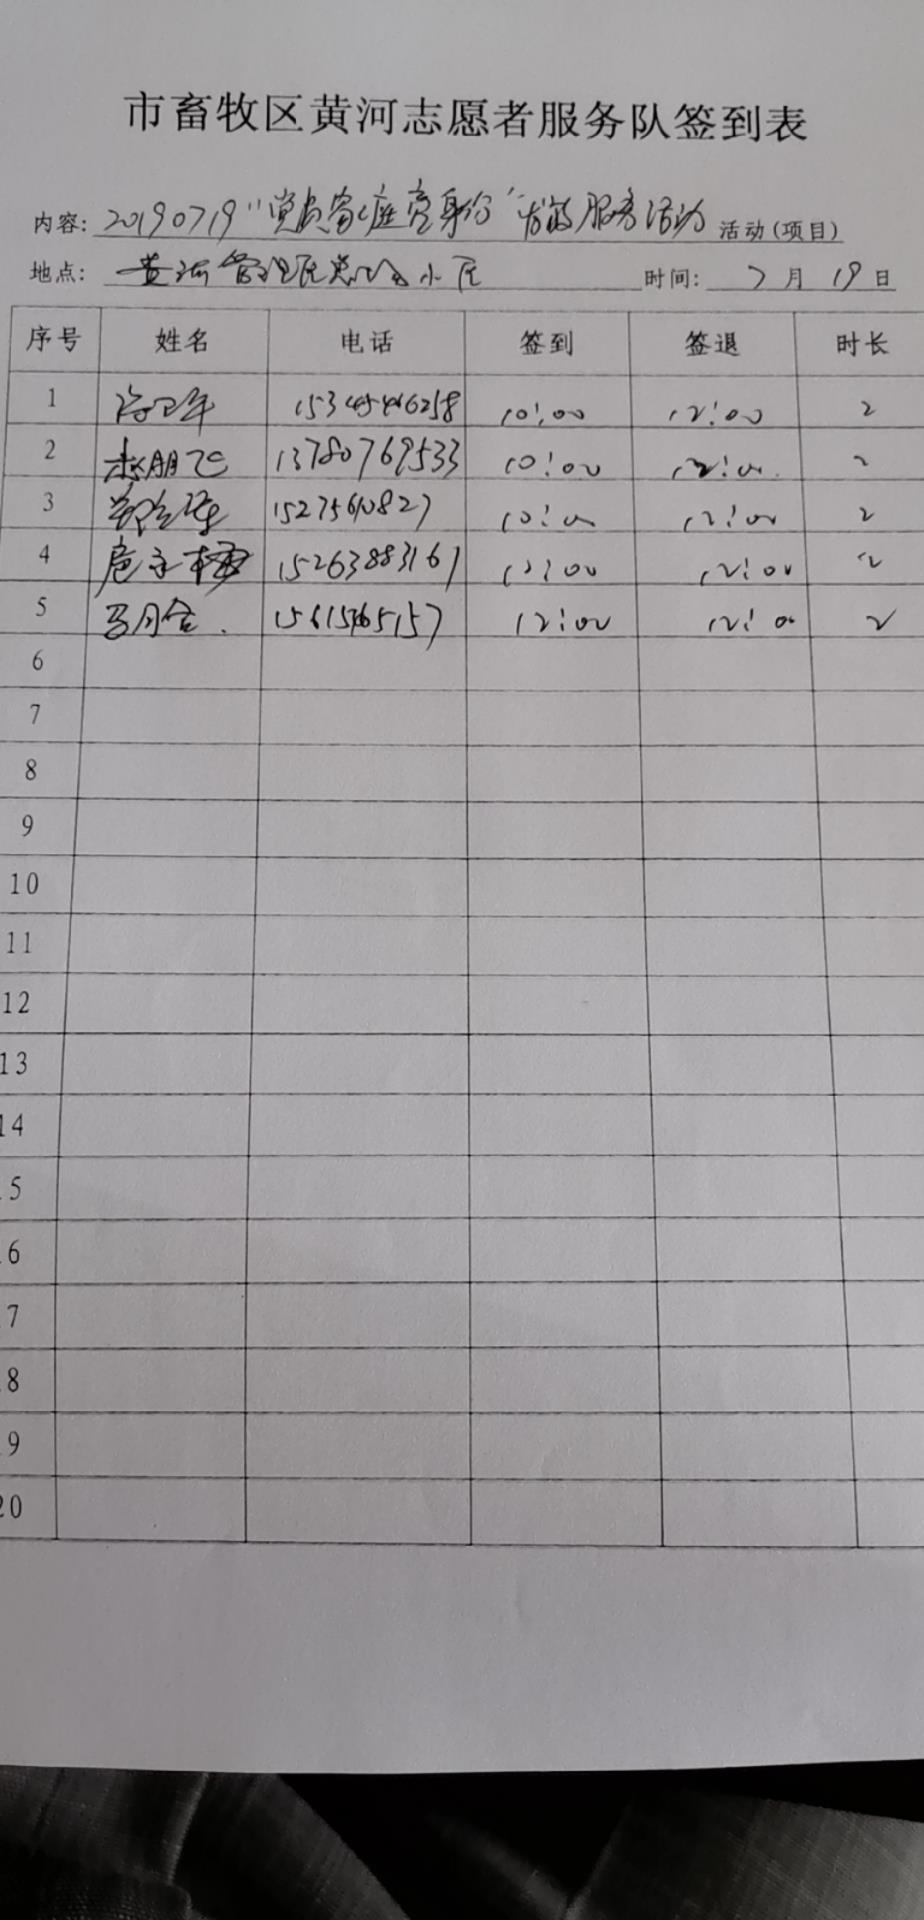 市畜牧区黄河志愿者服务队签到表
内容: 20190719"党员家庭亮身份"志愿服务活动 活动(项目)
地点: 黄河管理 小区 时间: 7月19日
序号 姓名 电话 签到 签退 时长
1 15345466258 10:00 12:00 2
2 赵朋飞 13780769533 10:00 12:00 2
3 15275610827 10:00 12:00 2
4 15263883161 12:00 2
5 马月 12:00 12:00 2
6
7
8
9
10
11
12
13
14
5
6
7
8
9
20